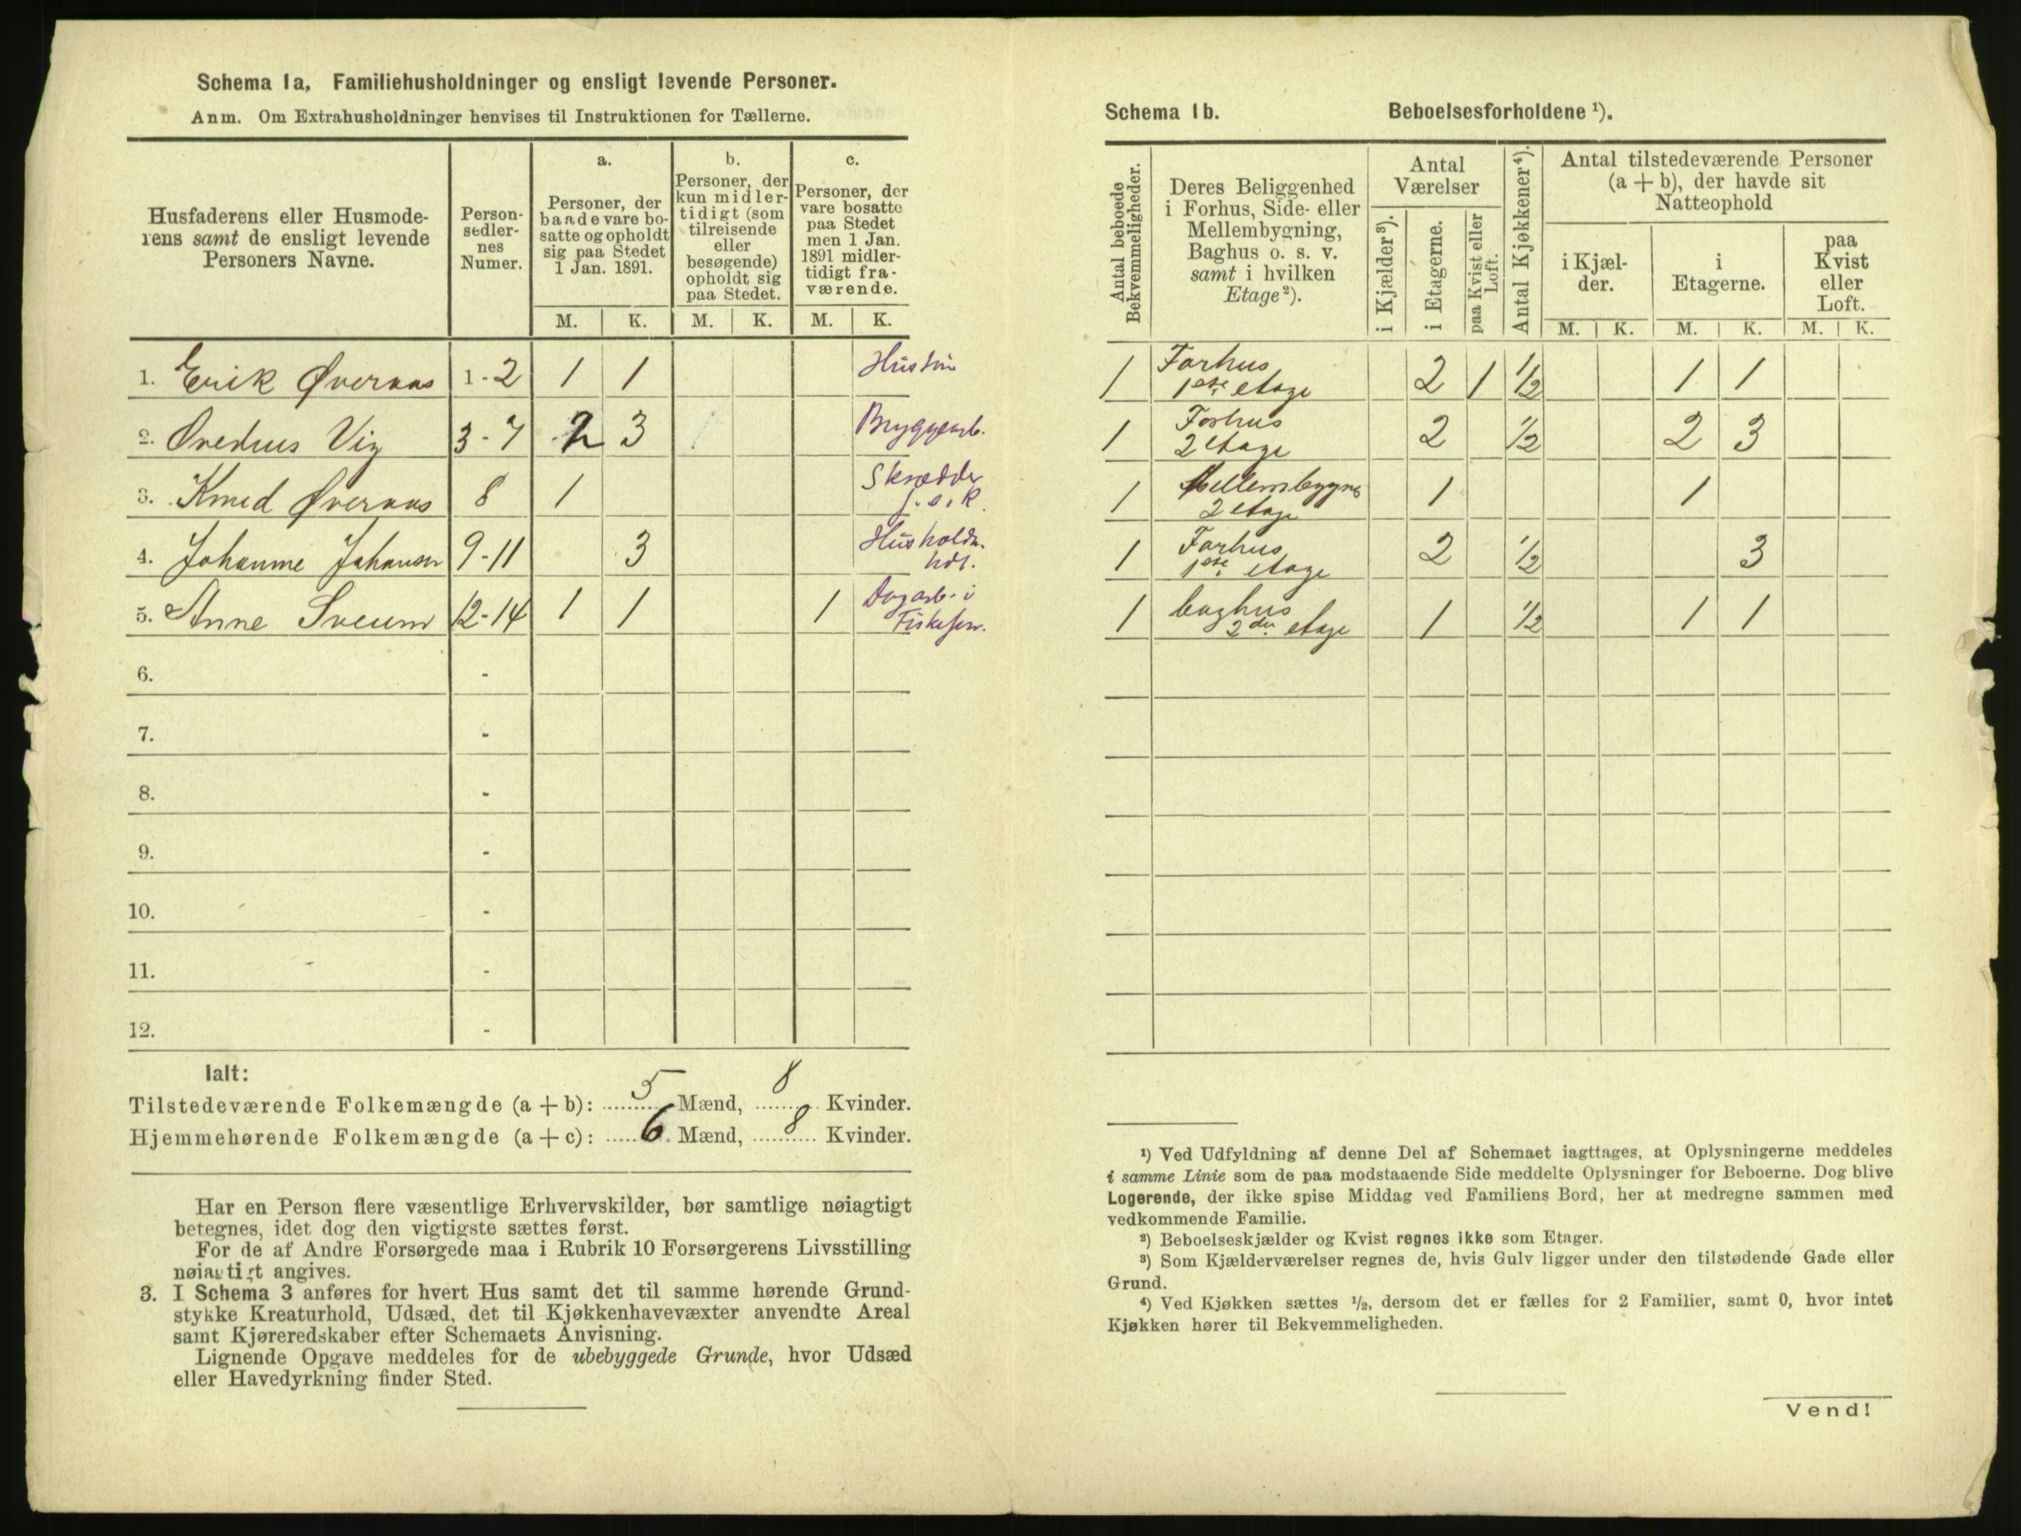 Schema 1a, Familiehusholdninger og ensligt levende Personer.
Anm. Om Extrahusholdninger henvises til Instruktionen for Tællerne.
Husfaderens eller Husmoderens samt de ensligt levende Personers Navne.
Personsedlernes Numer.
a.
Personer, der baade vare bosatte og opholdt sig paa Stedet 1 Jan. 1891.
b.
Personer, der kun midlertidigt (som tilreisende eller besøgende) opholdt sig paa Stedet.
c.
Personer, der vare bosatte paa Stedet men 1 Jan. 1891 midlertidigt fraværende.
M. K. M. K. M. K.
1. Erik Øveraas 1-2 1 1
2. Ovedius Vig 3-7 2 3 Bryggearb.
3. Knud Øveraas 8 1 Skrædder f. e. R.
4. Johanne Johansen 9-11 3 Husholdn. hdl.
5. Anne Sveum 12-14 1 1 1 Dagarb. i
6. -
7. -
8. -
9. -
10. -
11. -
12. -
Ialt:
Tilstedeværende Folkemængde (a + b): 5 Mænd, 8 Kvinder.
Hjemmehørende Folkemængde (a + c): 6 Mænd, 8 Kvinder.
Har en Person flere væsentlige Erhvervskilder, bør samtlige nøiagtigt
betegnes, idet dog den vigtigste sættes først.
For de af Andre Forsørgede maa i Rubrik 10 Forsørgerens Livsstilling
nøiagtigt angives.
3. I Schema 3 anføres for hvert Hus samt det til samme hørende Grund-
stykke Kreaturhold, Udsæd, det til Kjøkkenhavevæxter anvendte Areal
samt Kjøreredskaber efter Schemaets Anvisning.
Lignende Opgave meddeles for de ubebyggede Grunde, hvor Udsæd
eller Havedyrkning finder Sted.
Schema 1b. Beboelsesforholdene ¹).
Antal beboede Bekvemmeligheder.
Deres Beliggenhed i Forhus, Side- eller Mellembygning, Baghus o. s. v. samt i hvilken Etage ²).
Antal Værelser
i Kjælder ³).
i Etagerne.
paa Kvist eller Loft.
Antal Kjøkkener ⁴).
Antal tilstedeværende Personer (a + b), der havde sit Natteophold
i Kjælder.
i Etagerne.
paa Kvist eller Loft.
M. K. M. K. M. K.
1 Forhus 1ste etage 2 1 1/2 1 1
1 Forhus 2 etage 2 1/2 2 3
1 Mellembygn 2 etage 1 1
1 Forhus 1ste etage 2 1/2 3
1 baghus 2den etage 1 1/2 1 1
¹) Ved Udfyldning af denne Del af Schemaet iagttages, at Oplysningerne meddeles
i samme Linie som de paa modstaaende Side meddelte Oplysninger for Beboerne. Dog blive
Logerende, der ikke spise Middag ved Familiens Bord, her at medregne sammen med
vedkommende Familie.
²) Beboelseskjælder og Kvist regnes ikke som Etager.
³) Som Kjælderværelser regnes de, hvis Gulv ligger under den tilstødende Gade eller
Grund.
⁴) Ved Kjøkken sættes 1/2, dersom det er fælles for 2 Familier, samt 0, hvor intet
Kjøkken hører til Bekvemmeligheden.
Vend!